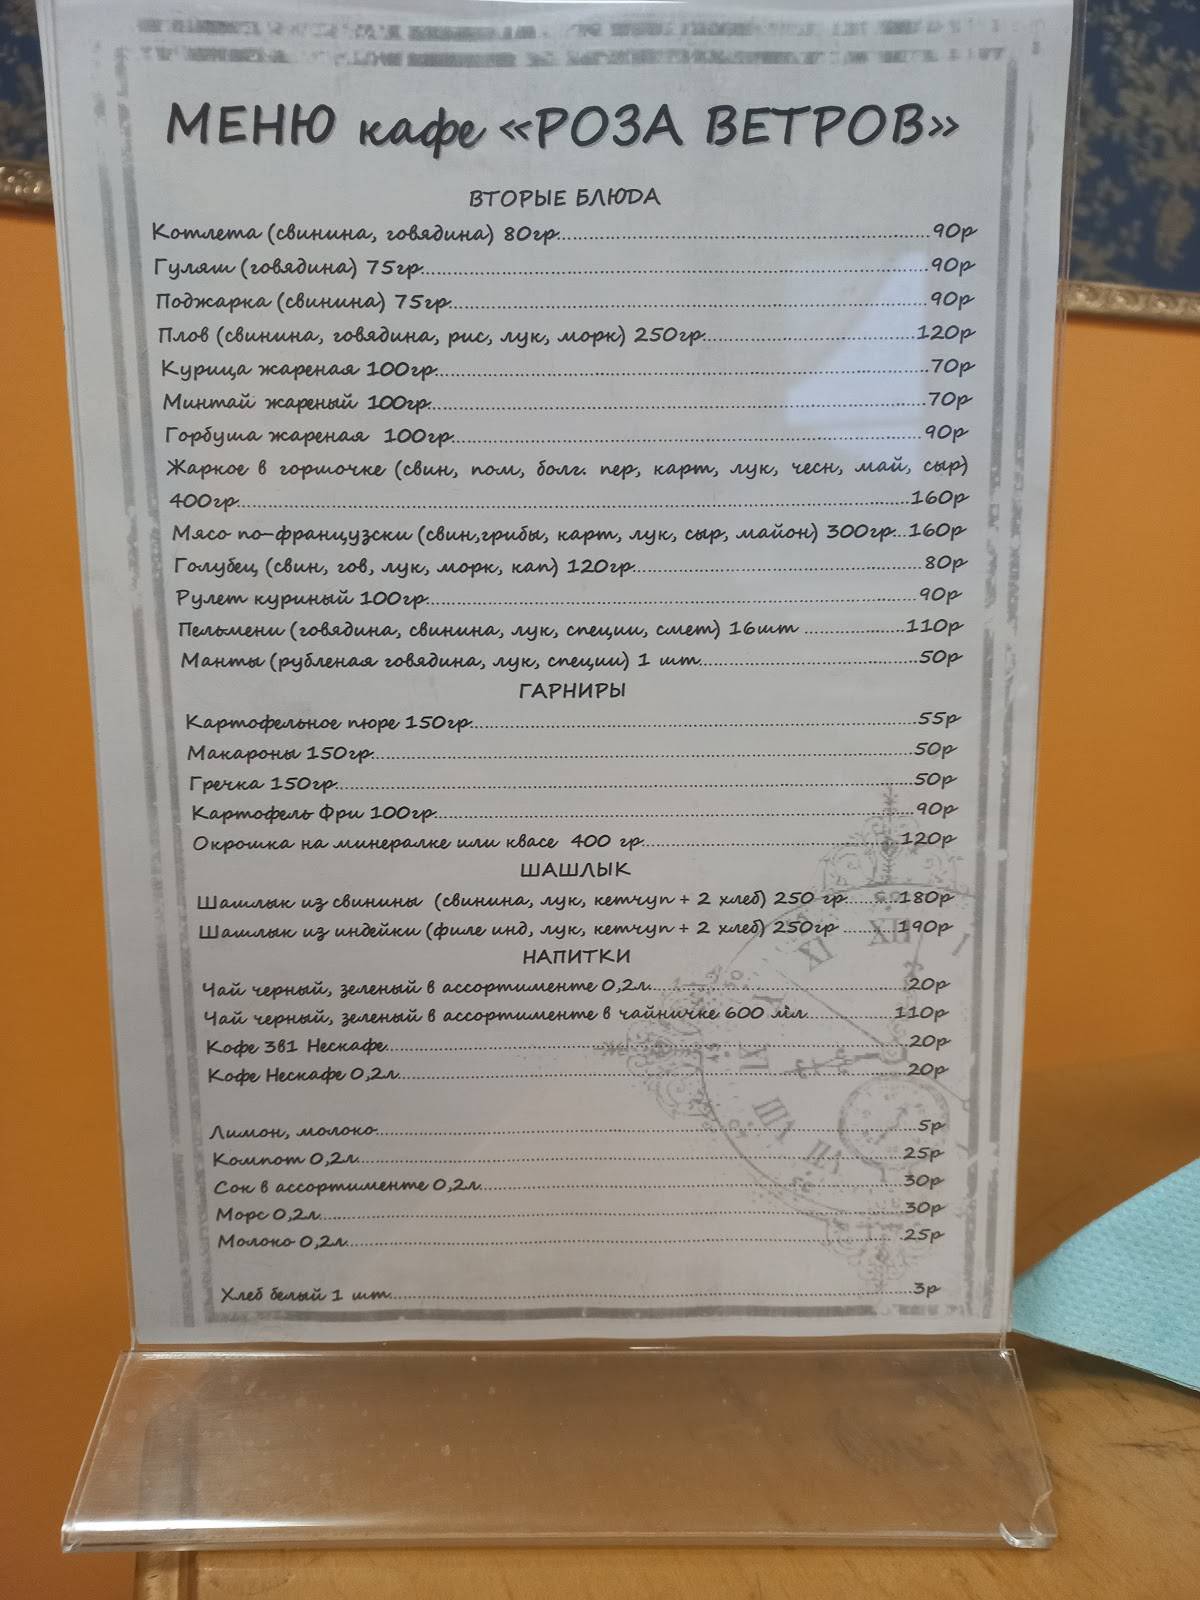 МЕНЮ кафе «РОЗА ВЕТРОВ»
ВТОРЫЕ БЛЮДА
Котлета (свинина, говядина) 80гр.....90р
Гуляш (говядина) 75гр.....90р
Поджарка (свинина) 75гр.....90р
Плов (свинина, говядина, рис, лук, морк) 250гр.....120р
Курица жареная 100гр.....70р
Минтай жареный 100гр.....70р
Горбуша жареная 100гр.....90р
Жаркое в горшочке (свин, пом, болг. пер, карт, лук, чесн, май, сыр)
400гр.....160р
Мясо по-французски (свин,грибы, карт, лук, сыр, майон) 300гр...160р
Голубец (свин, гов, лук, морк, кап) 120гр.....80р
Рулет куриный 100гр.....90р
Пельмени (говядина, свинина, лук, специи, смет) 16шт .....110р
Манты (рубленая говядина, лук, специи) 1 шт.....50р
ГАРНИРЫ
Картофельное пюре 150гр.....55р
Макароны 150гр.....50р
Гречка 150гр.....50р
Картофель Фри 100гр.....90р
Окрошка на минералке или квасе 400 гр.....120р
ШАШЛЫК
Шашлык из свинины (свинина, лук, кетчуп + 2 хлеб) 250 гр.....180р
Шашлык из индейки (филе инд, лук, кетчуп + 2 хлеб) 250гр .....190р
НАПИТКИ
Чай черный, зеленый в ассортименте 0,2л.....20р
Чай черный, зеленый в ассортименте в чайничке 600 мл.....110р
Кофе 3в1 Нескафе.....20р
Кофе Нескафе 0,2л.....20р
Лимон, молоко.....5р
Компот 0,2л.....25р
Сок в ассортименте 0,2л.....30р
Морс 0,2л.....30р
Молоко 0,2л.....25р
Хлеб белый 1 шт.....3р